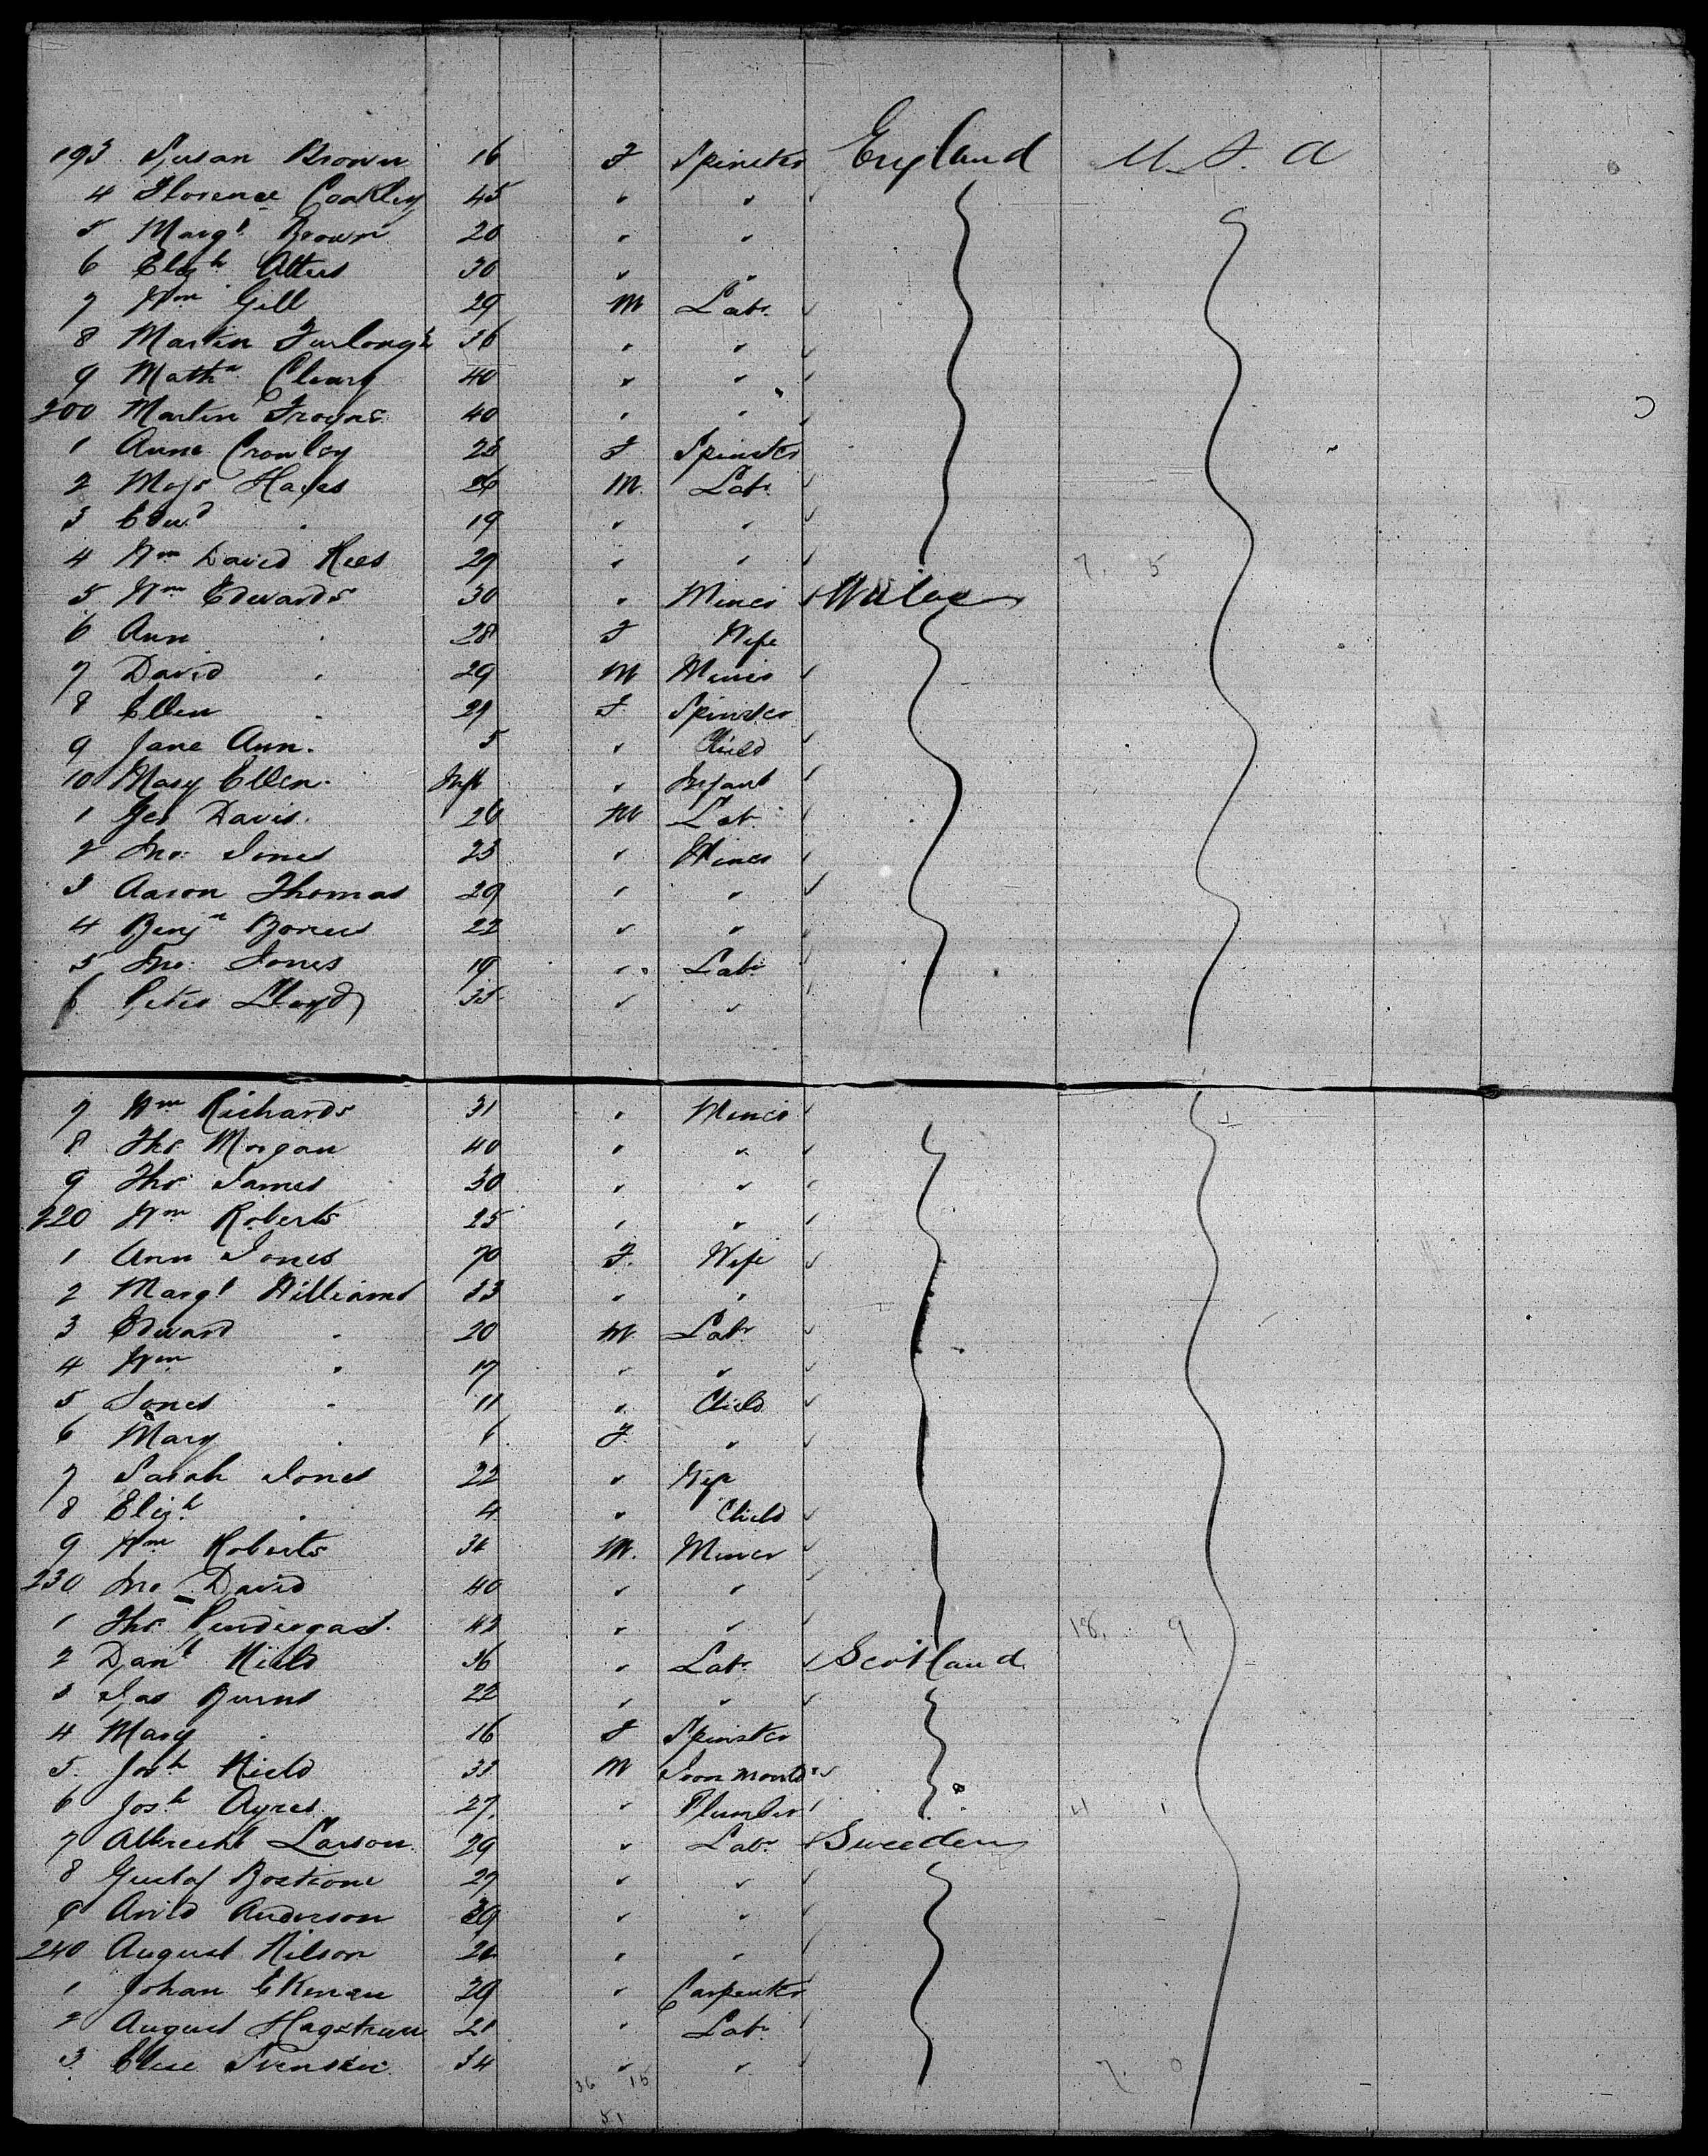 193 Susan Brown 16 F Spinster England U.S.A
4 Florence Coakley 45 " "
5 Margt Brown 20 " "
6 Elizh 30 " "
7 Wm Gill 29 M Labr
8 Martin Furlong 36 " "
9 Mattw Cleary 40 " "
200 Martin 40 " "
1 Anne Crowley 23 F Spinster
2 Hayes 26 M Labr
3 Edwd " 19 " "
4 Wm David Rees 29 " " 7. 5
5 Wm Edwards 30 " Miner Wales
6 Ann " 28 F Wife
7 David " 29 M Miner
8 Ellen " 29 F Spinster
9 Jane Ann. 5 " Child
10 Mary Ellen. Inft " Infant
1 Geo Davis. 26 M Labr
2 Jno: Jones 23 " Miner
3 Aaron Thomas 29 " "
4 Benjn 22 " "
5 Jno: Jones 19 " Labr
6 Peter Lloyd 35 " "
7 Wm Richards 31 " Miner
8 Thos Morgan 40 " "
9 Thos James 30 " "
220 Wm Roberts 25 " "
1 Ann Jones 70 F. Wife
2 Margt Williams 33 " "
3 Edward " 20 M Labr
4 Wm " 17 " "
5 Jones " 11 " Child
6 Mary " 6 F. "
7 Sarah Jones 22 " Wife
8 Elizh " 4 " Child
9 Wm Roberts 36 M. Miner
230 Jno David 40 " "
1 Thos Pendergast. 42 " " 18. 9
2 Danl Nield 36 " Labr Scotland
3 Jas Burns 22 " "
4 Mary " 16 F Spinster
5. Josh Nield 33 M Iron Mouldr
6 Josh Ayres 27. " Plumber 4 1
7 Albrecht Larson. 29 " Labr Sweeden
8 Gustaf Bostrom 27 " "
9 Arvid Anderson 39 " "
240 August Nilson 26 " "
1 Johan Ekman 29 " Carpenter
2 August Hagstrum 21 " Labr
3. 34 " " 7. 0
36 15
51